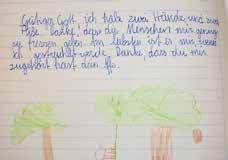 Gütiger Gott, ich habe zwei Hände und zwei
Füße. Danke, dass die Menschen mir genug
zu fressen geben. Am liebsten ist es mir, wenn
ich gestreichelt werde. Danke, dass du mir
zugehört hast dein